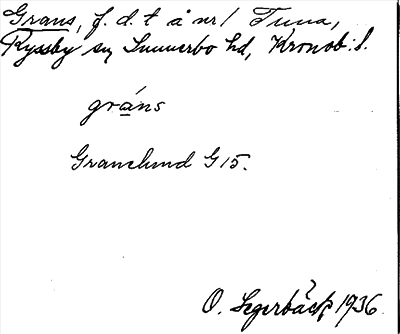 Grans, f. d. t å nr 1 Tuna,
Ryssby sn, Sunnerbo hd, Kronob. l.
gràns
Granelund G 15.
O. Segerbäck, 1936